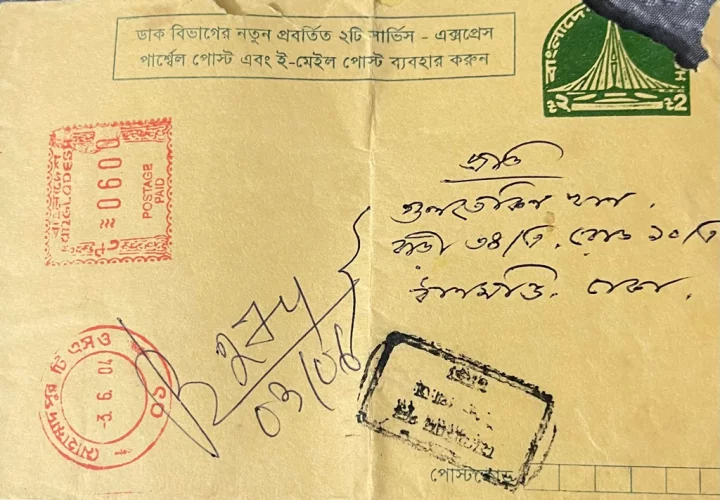 ডাক বিভাগের নতুন প্রবর্তিত ২টি সার্ভিস - এক্সপ্রেস
পার্শ্বেল পোস্ট এবং ই-মেইল পোস্ট ব্যবহার করুন
বাংলাদেশ
২ 2
বাংলাদেশ
BANGLADESH
0600
POSTAGE
PAID
প্রতি
গুলতেকিন খান.
বাড়ী ৩৪/এ. রোড ১০/এ
ধানমন্ডি. ঢাকা.
মোহাম্মদপুর টি এসও
-3. 6. 04
পোস্টকোড